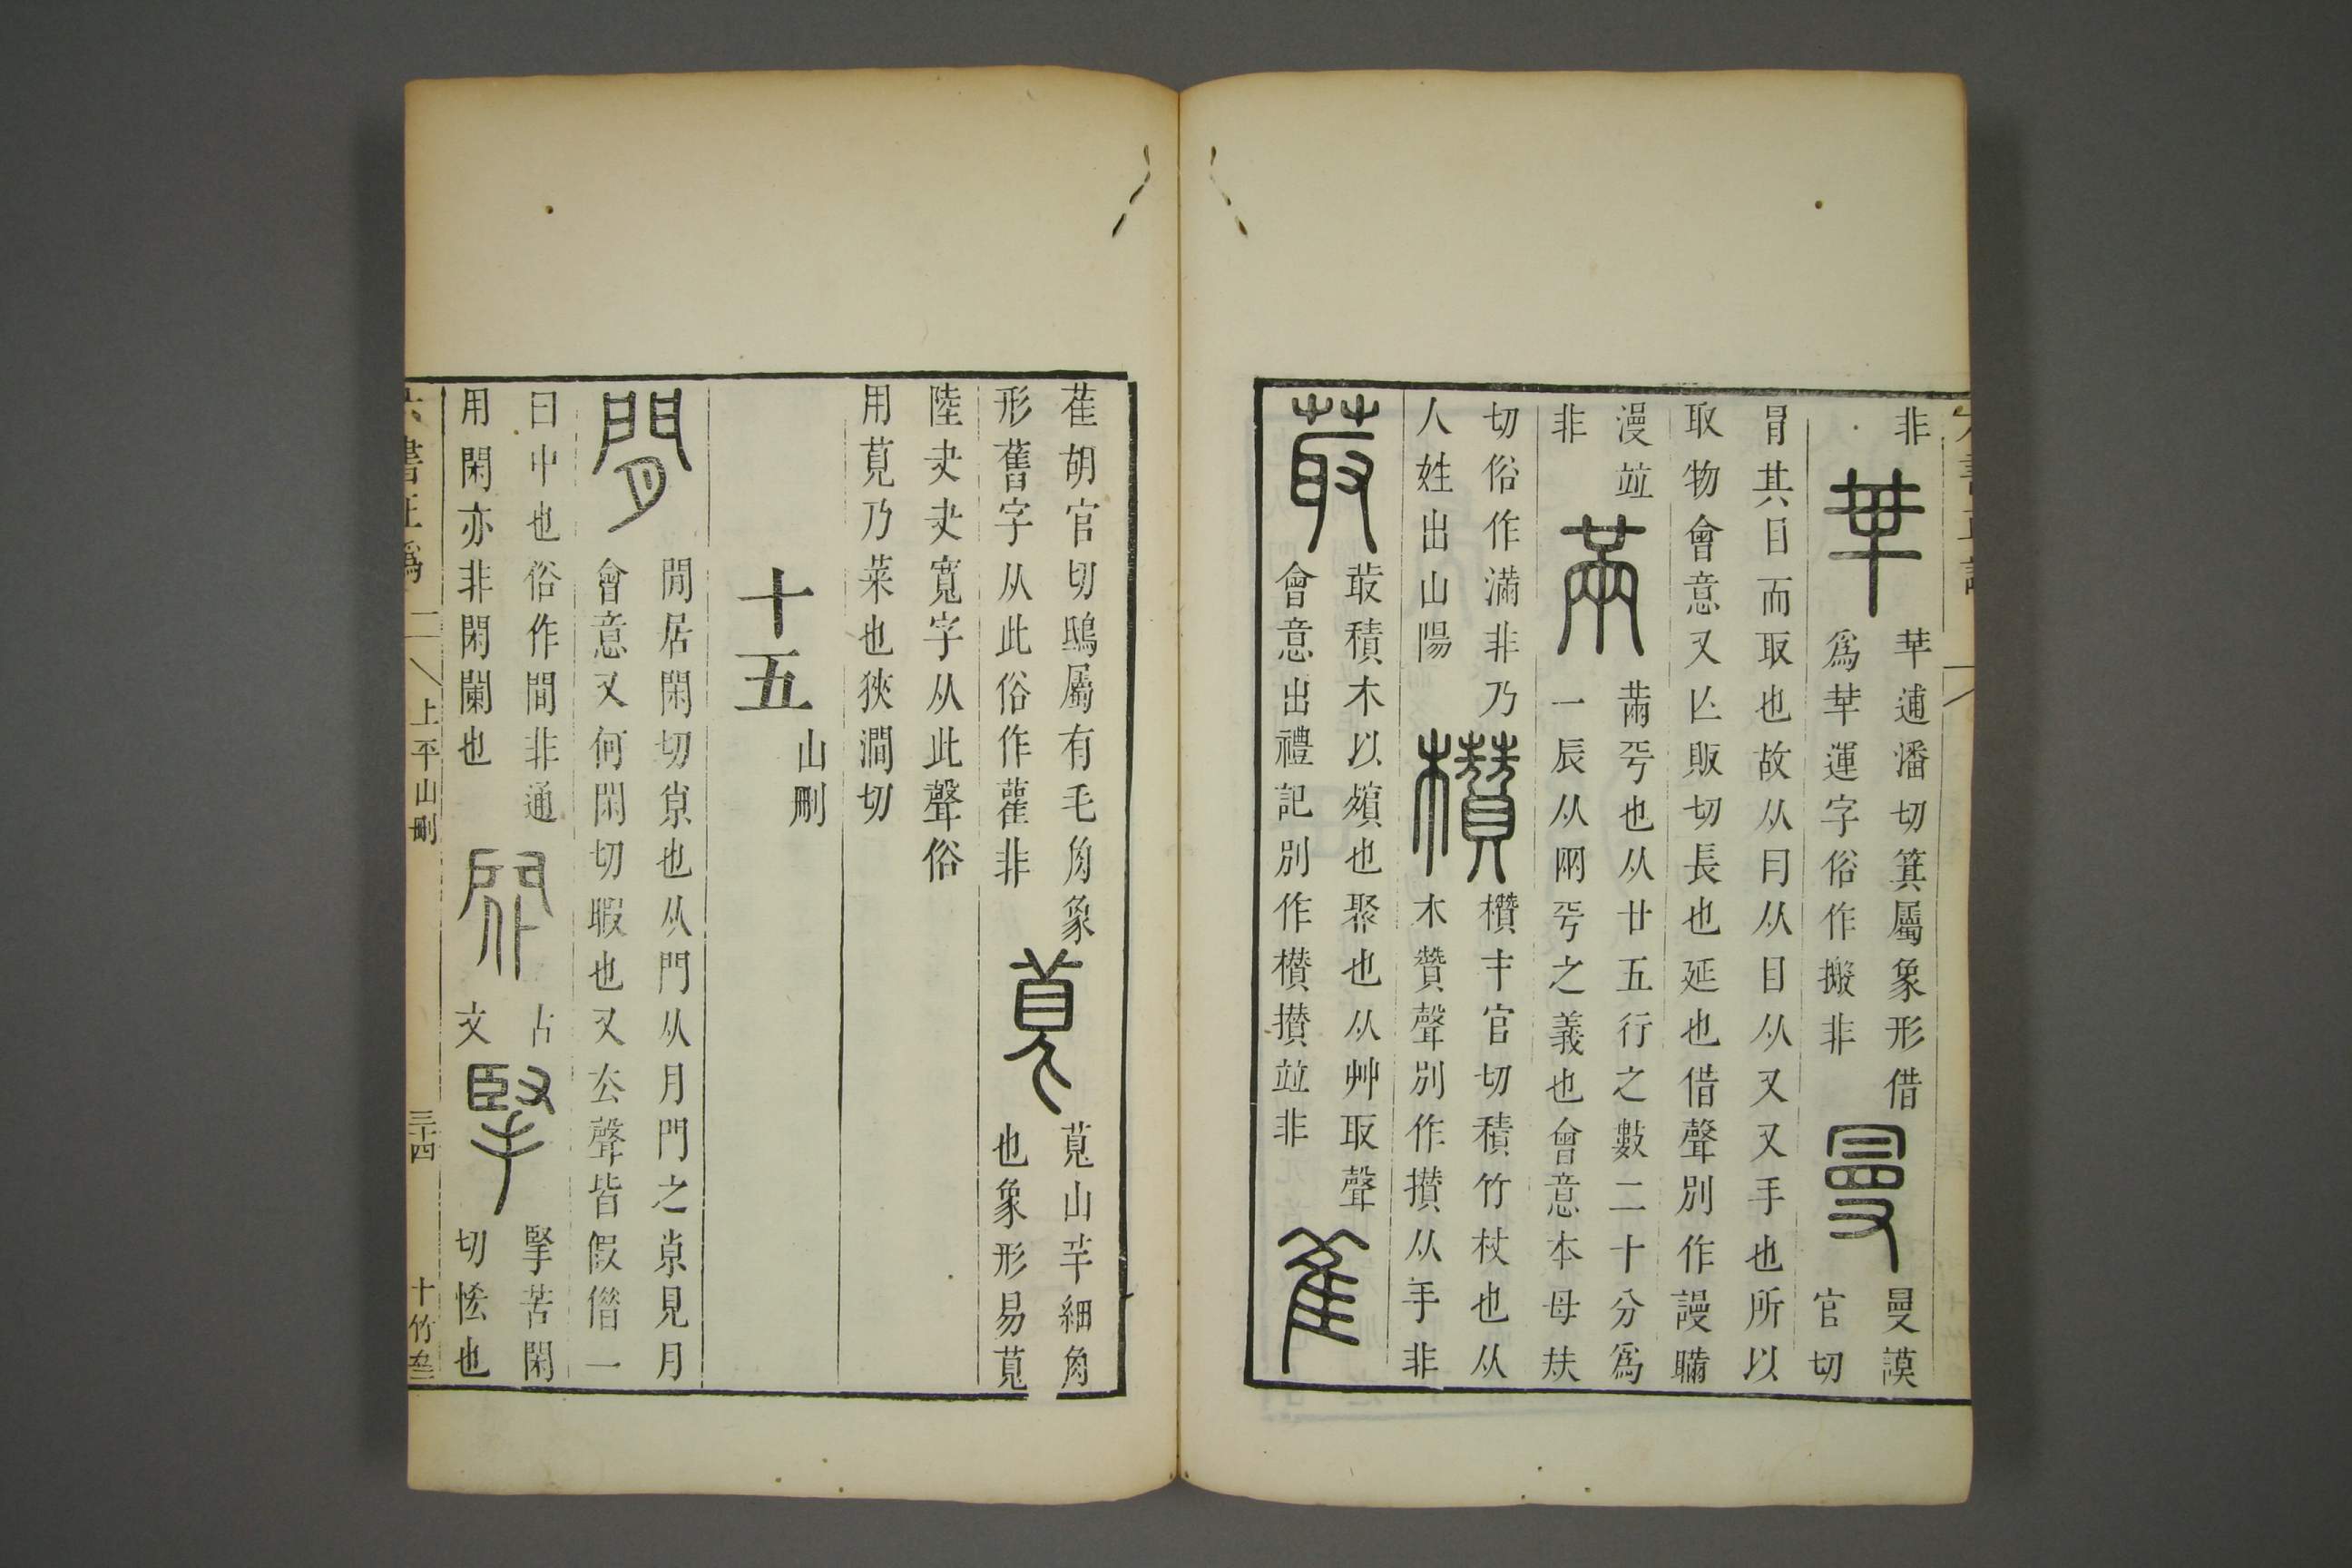 非
華
𠦒逋潘切箕屬象形借
爲𠦒運字俗作搬非
曼
曼謨
官切
冒其目而取也故从冃从目从又又手也所以
取物會意又匹販切長也延也借聲別作謾𥈭
漫竝
非
㒼
㒼㒳也从廿五行之數二十分爲
一辰从㒳㒳之義也會意本母夫
切俗作滿非乃
人姓出山陽
欑
欑丯官切積竹杖也从
木贊聲別作攢从手非
菆
菆積木以殯也聚也从艸取聲
會意出禮記別作欑攢竝非
雈
雈胡官切鴟屬有毛角象
形舊字从此俗作雚非
萈
萈山羊細角
也象形易萈
陸夬夬寬字从此聲俗
用莧乃菜也狹澗切
十五
山刪
閒
閒居閑切𡭴也从門从月門之𡭴見月
會意又何閑切暇也又去聲皆假借一
曰中也俗作間非通
用閑亦非閑闌也
古
文
掔
掔苦閑
切恡也
六書正譌
上平山刪
三十四
十竹齋